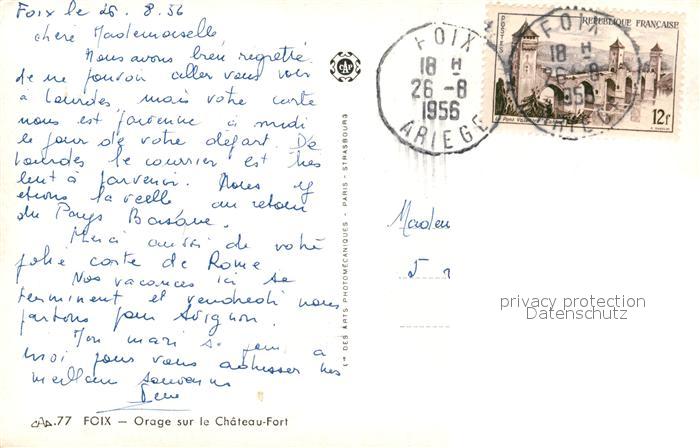 Foix le 26.8.56
chère Mademoiselle
Nous avons bien regretté
de ne pouvoir aller vous voir
à Lourdes, mais votre carte
nous est parvenue à midi
le jour de votre départ. De
Lourdes le courrier est très
lent à parvenir. Nous y
étions la veille au retour
du Pays Basque.
Merci aussi de votre
jolie carte de Rome
Nos vacances ici se
terminent et vendredi nous
partons pour Avignon.
Mon mari se joint à
moi pour vous adresser nos
meilleurs souvenirs
CAP.77 FOIX — Orage sur le Château-Fort
CAP
Cie DES ARTS PHOTOMÉCANIQUES - PARIS - STRASBOURG
FOIX
18 H
26-8
1956
ARIEGE
POSTES
REPUBLIQUE FRANÇAISE
12f
FOIX
18 H
26-8
1956
ARIEGE
Madem
5 r
privacy protection
Datenschutz